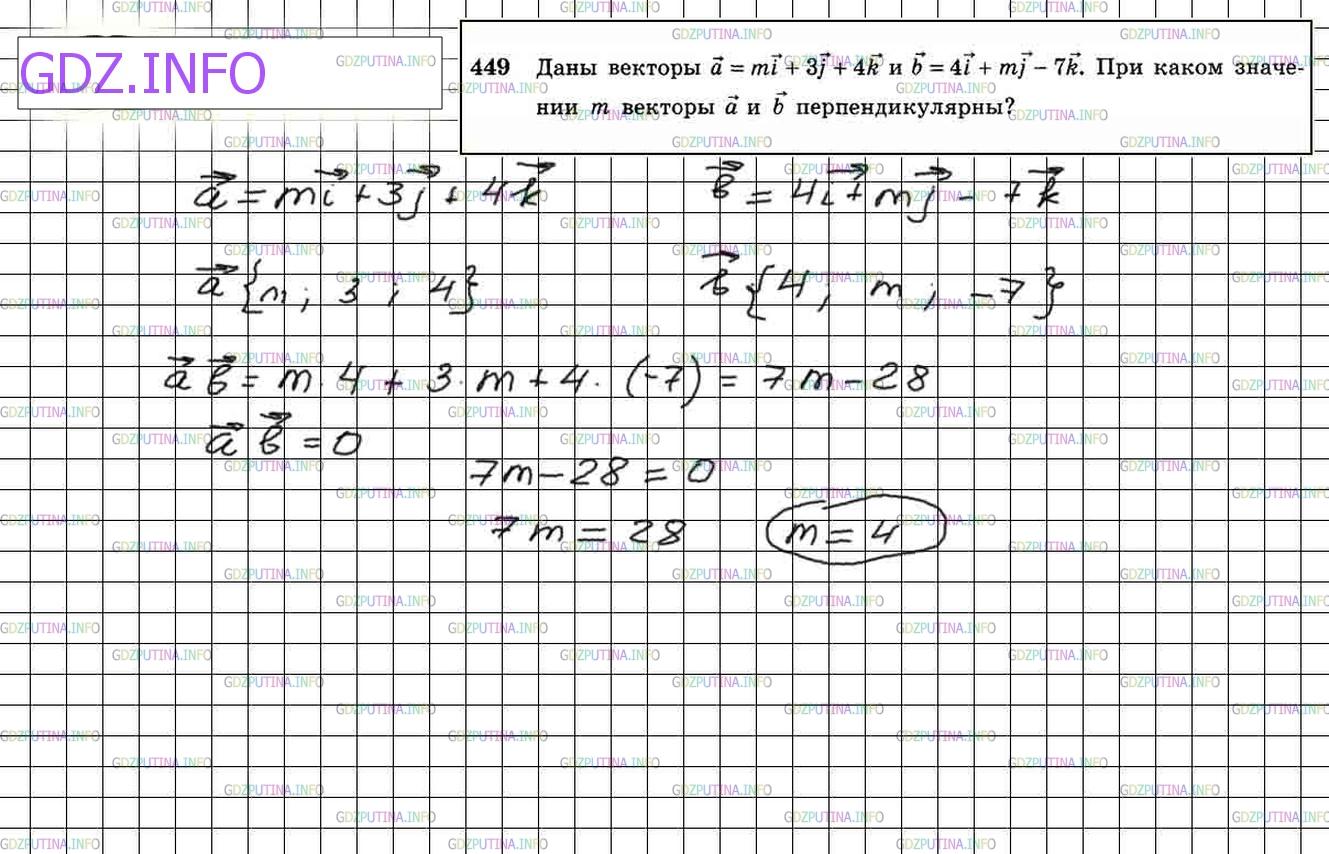 GDZ.INFO
449 Даны векторы a⃗ = mi⃗ + 3j⃗ + 4k⃗ и b⃗ = 4i⃗ + mj⃗ − 7k⃗. При каком значе-
нии m векторы a⃗ и b⃗ перпендикулярны?
a⃗ = mi⃗ + 3j⃗ + 4k⃗ b⃗ = 4i⃗ + mj⃗ − 7k⃗
a⃗ {m; 3; 4} b⃗ {4; m; −7}
a⃗ b⃗ = m · 4 + 3 · m + 4 · (−7) = 7m − 28
a⃗ b⃗ = 0
7m − 28 = 0
7m = 28 m = 4
GDZPUTINA.INFO